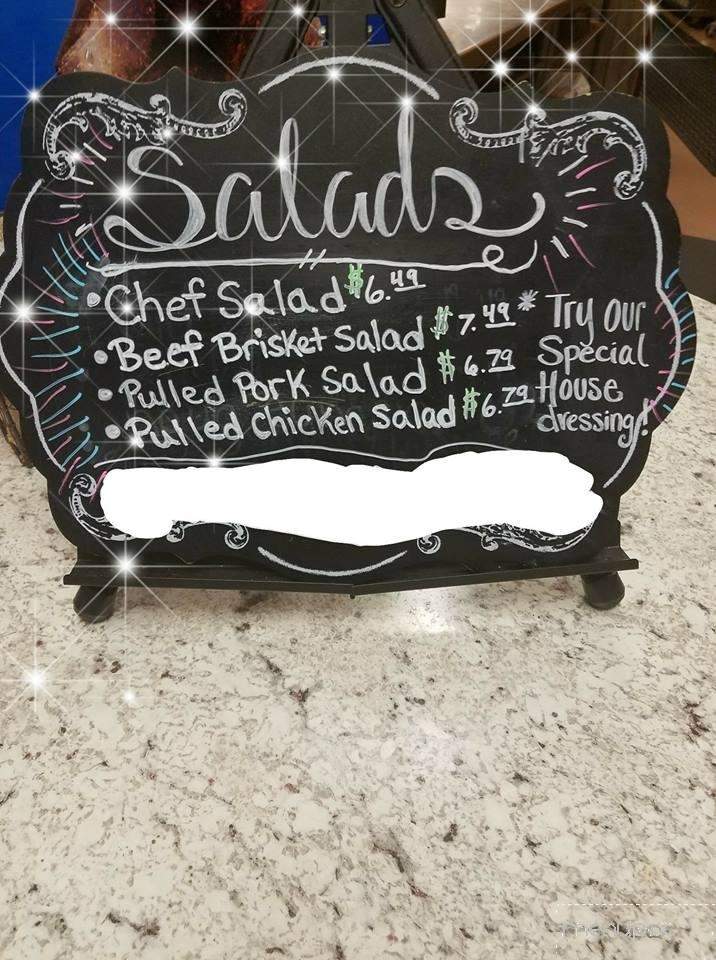 Salads
• Chef Salad $6.49
• Beef Brisket Salad $7.49
• Pulled Pork Salad $6.79
• Pulled Chicken Salad $6.79
* Try our
Special
House
dressing!